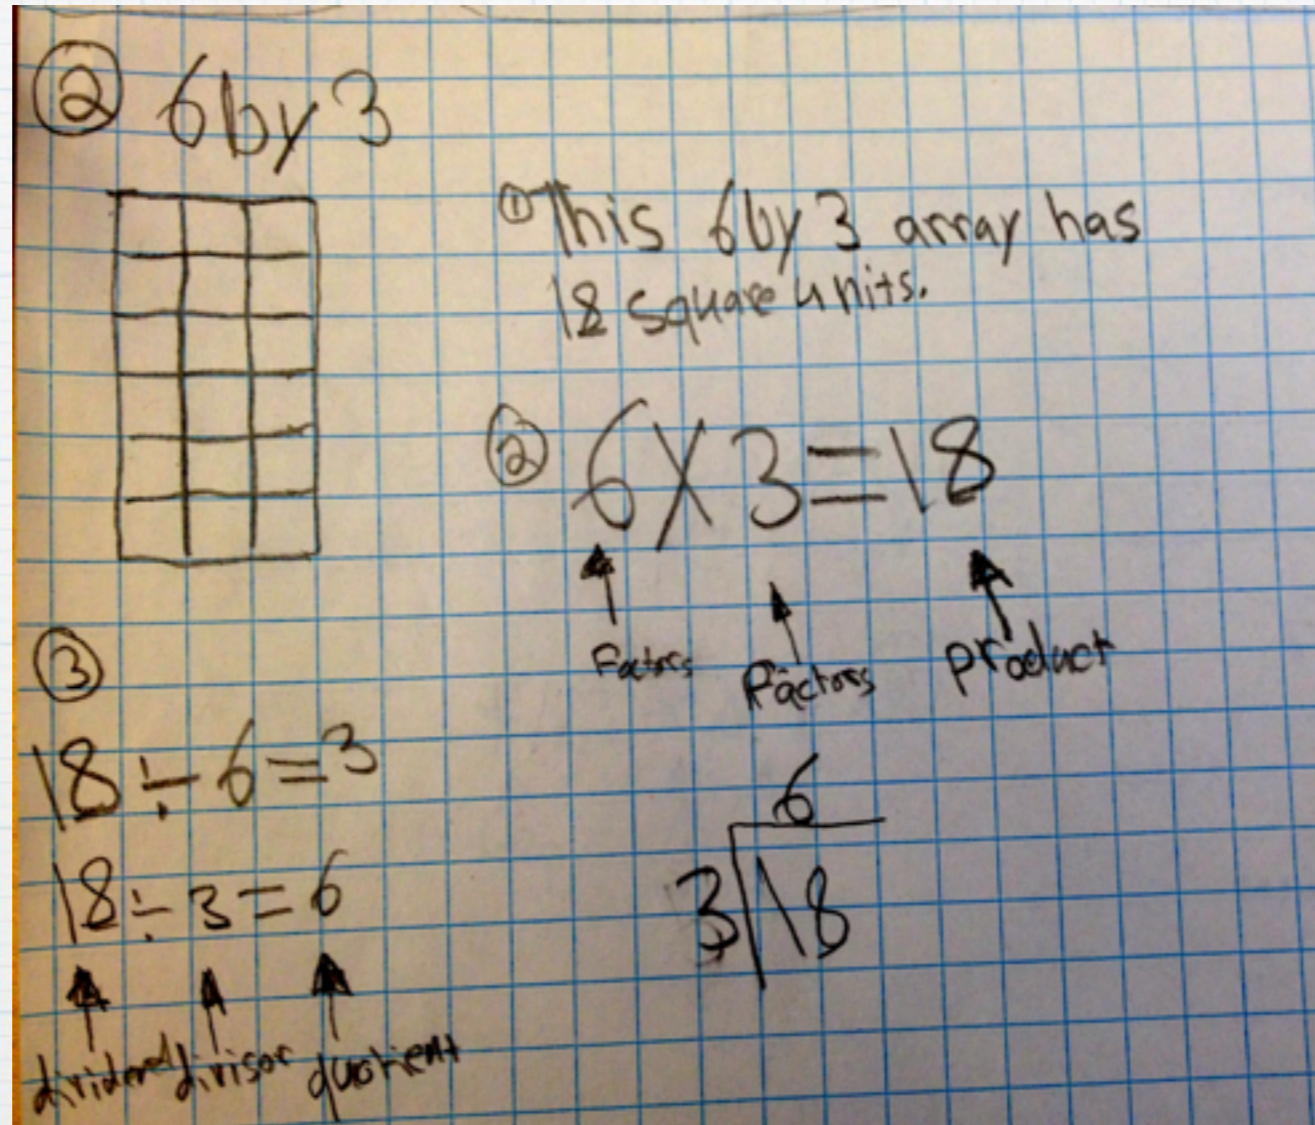 ② 6 by 3
① This 6 by 3 array has
18 square units.
② 6 X 3 = 18
Factors Factors product
③
18 ÷ 6 = 3
18 ÷ 3 = 6
dividend divisor quotient
6
3 18